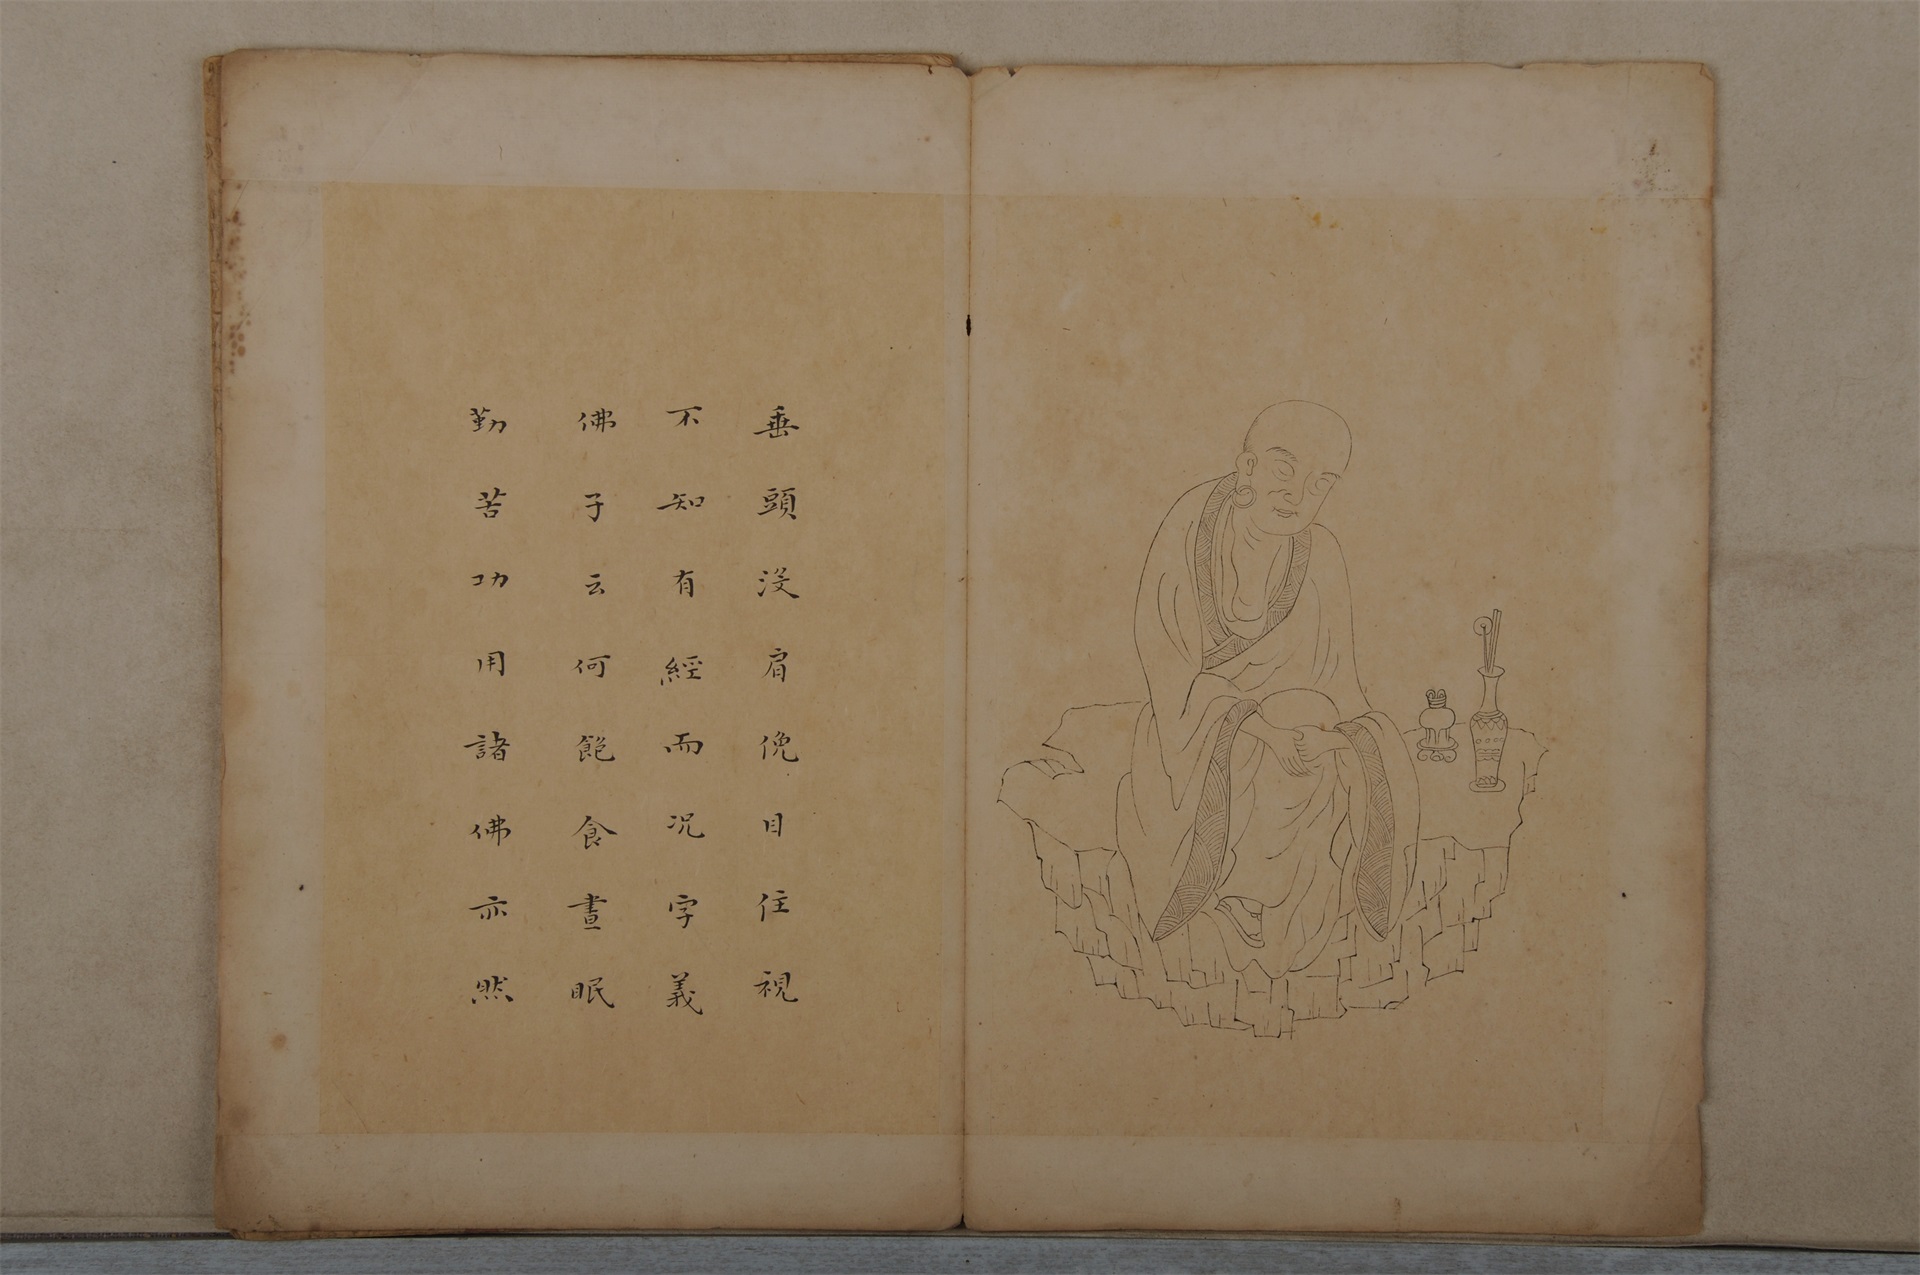 垂頭沒肩俛目住視
不知有經而况字義
佛子云何飽食晝眠
勤苦功用諸佛亦然